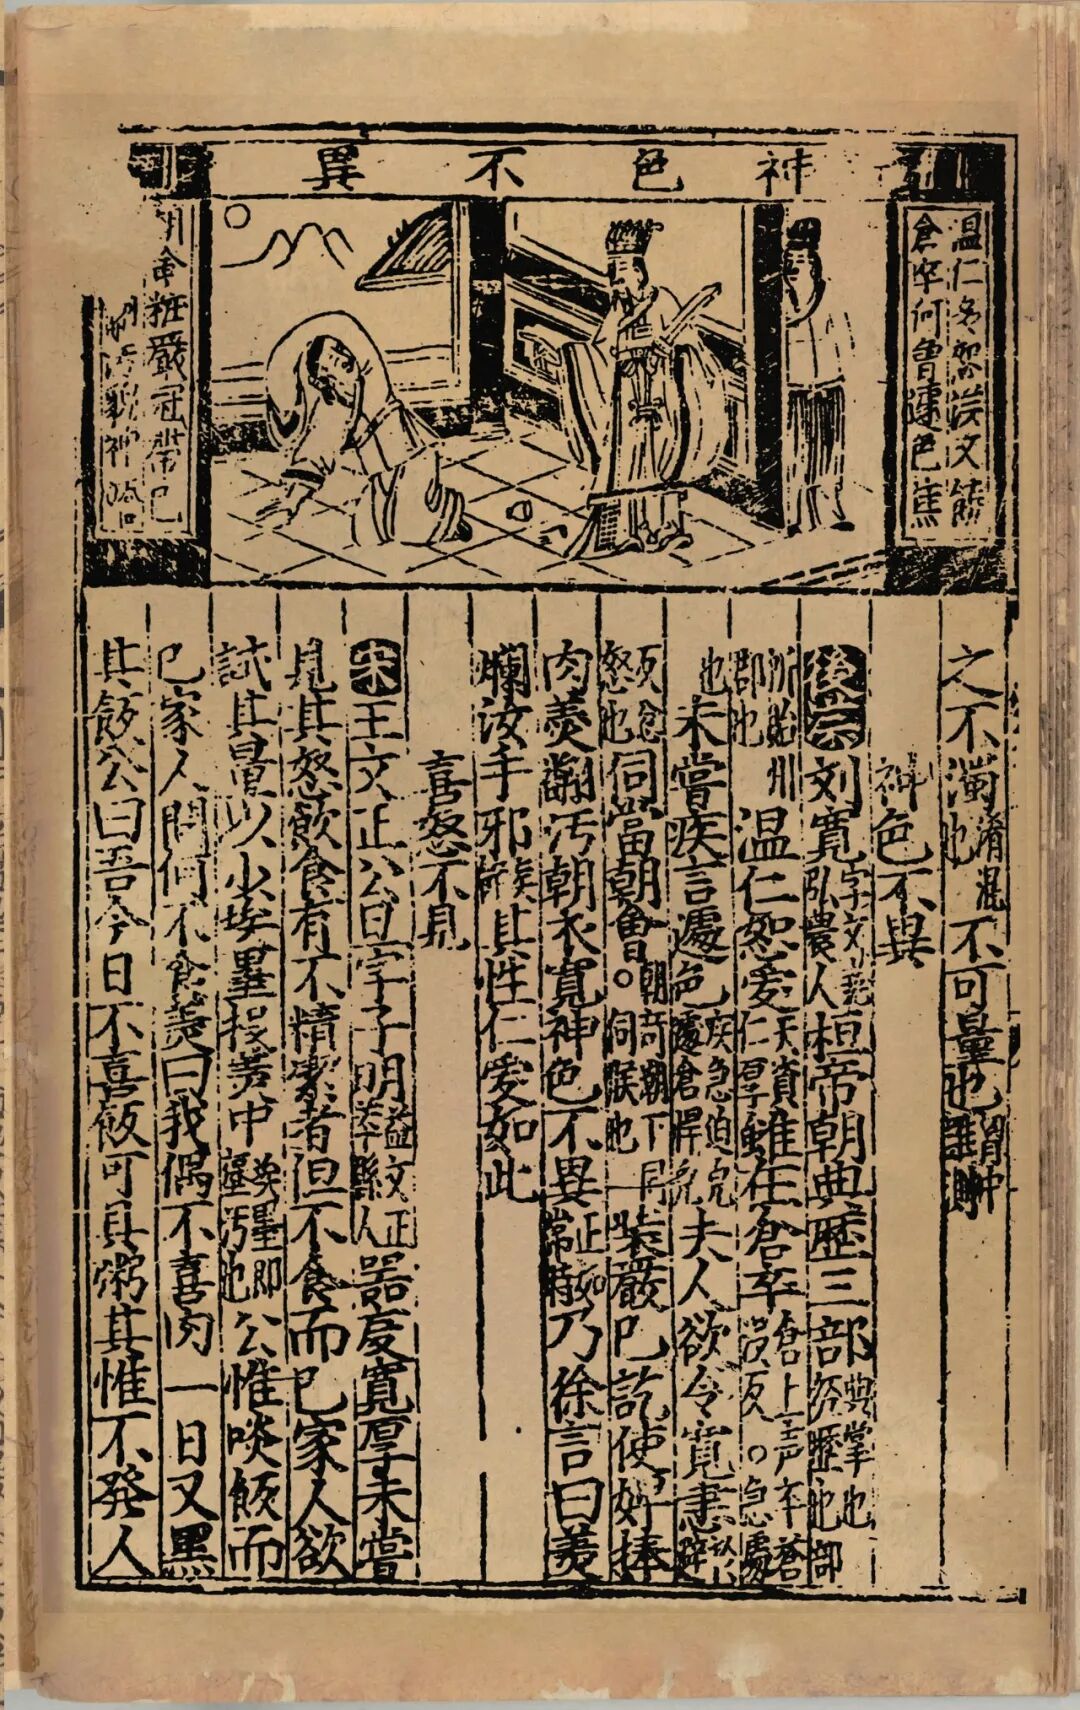 神色不異
温仁多恕漢文饒
倉卒何曾遽色焦
粧嚴冠帶已
之不濁淆混也不可量也
神色不異
後漢刘寛字文饒弘農人桓帝朝典歷三部典掌也歷經也部
所始州郡也温仁恕愛天資仁厚雖在倉卒倉上声卒蒼没反。急遽
也未嘗疾言遽色疾急迫皃遽倉惶皃夫人欲令寛恚
怒也伺當朝會。朝音潮下同伺候也裝嚴已訖使婢捧
肉羮翻汚朝衣寛神色不異正如常時乃徐言曰羮
爛汝手邪其性仁愛如此
喜怒不見
宋王文正公旦字子明謚文正莘縣人器度寛厚未嘗
見其怒飲食有不精潔者但不食而已家人欲
試其量以少埃墨投羮中埃墨即塵污也公惟啖飯而
已家人問何不食羮曰我偶不喜肉一日又墨
其飯公曰吾今日不喜飯可具粥其惟不發人